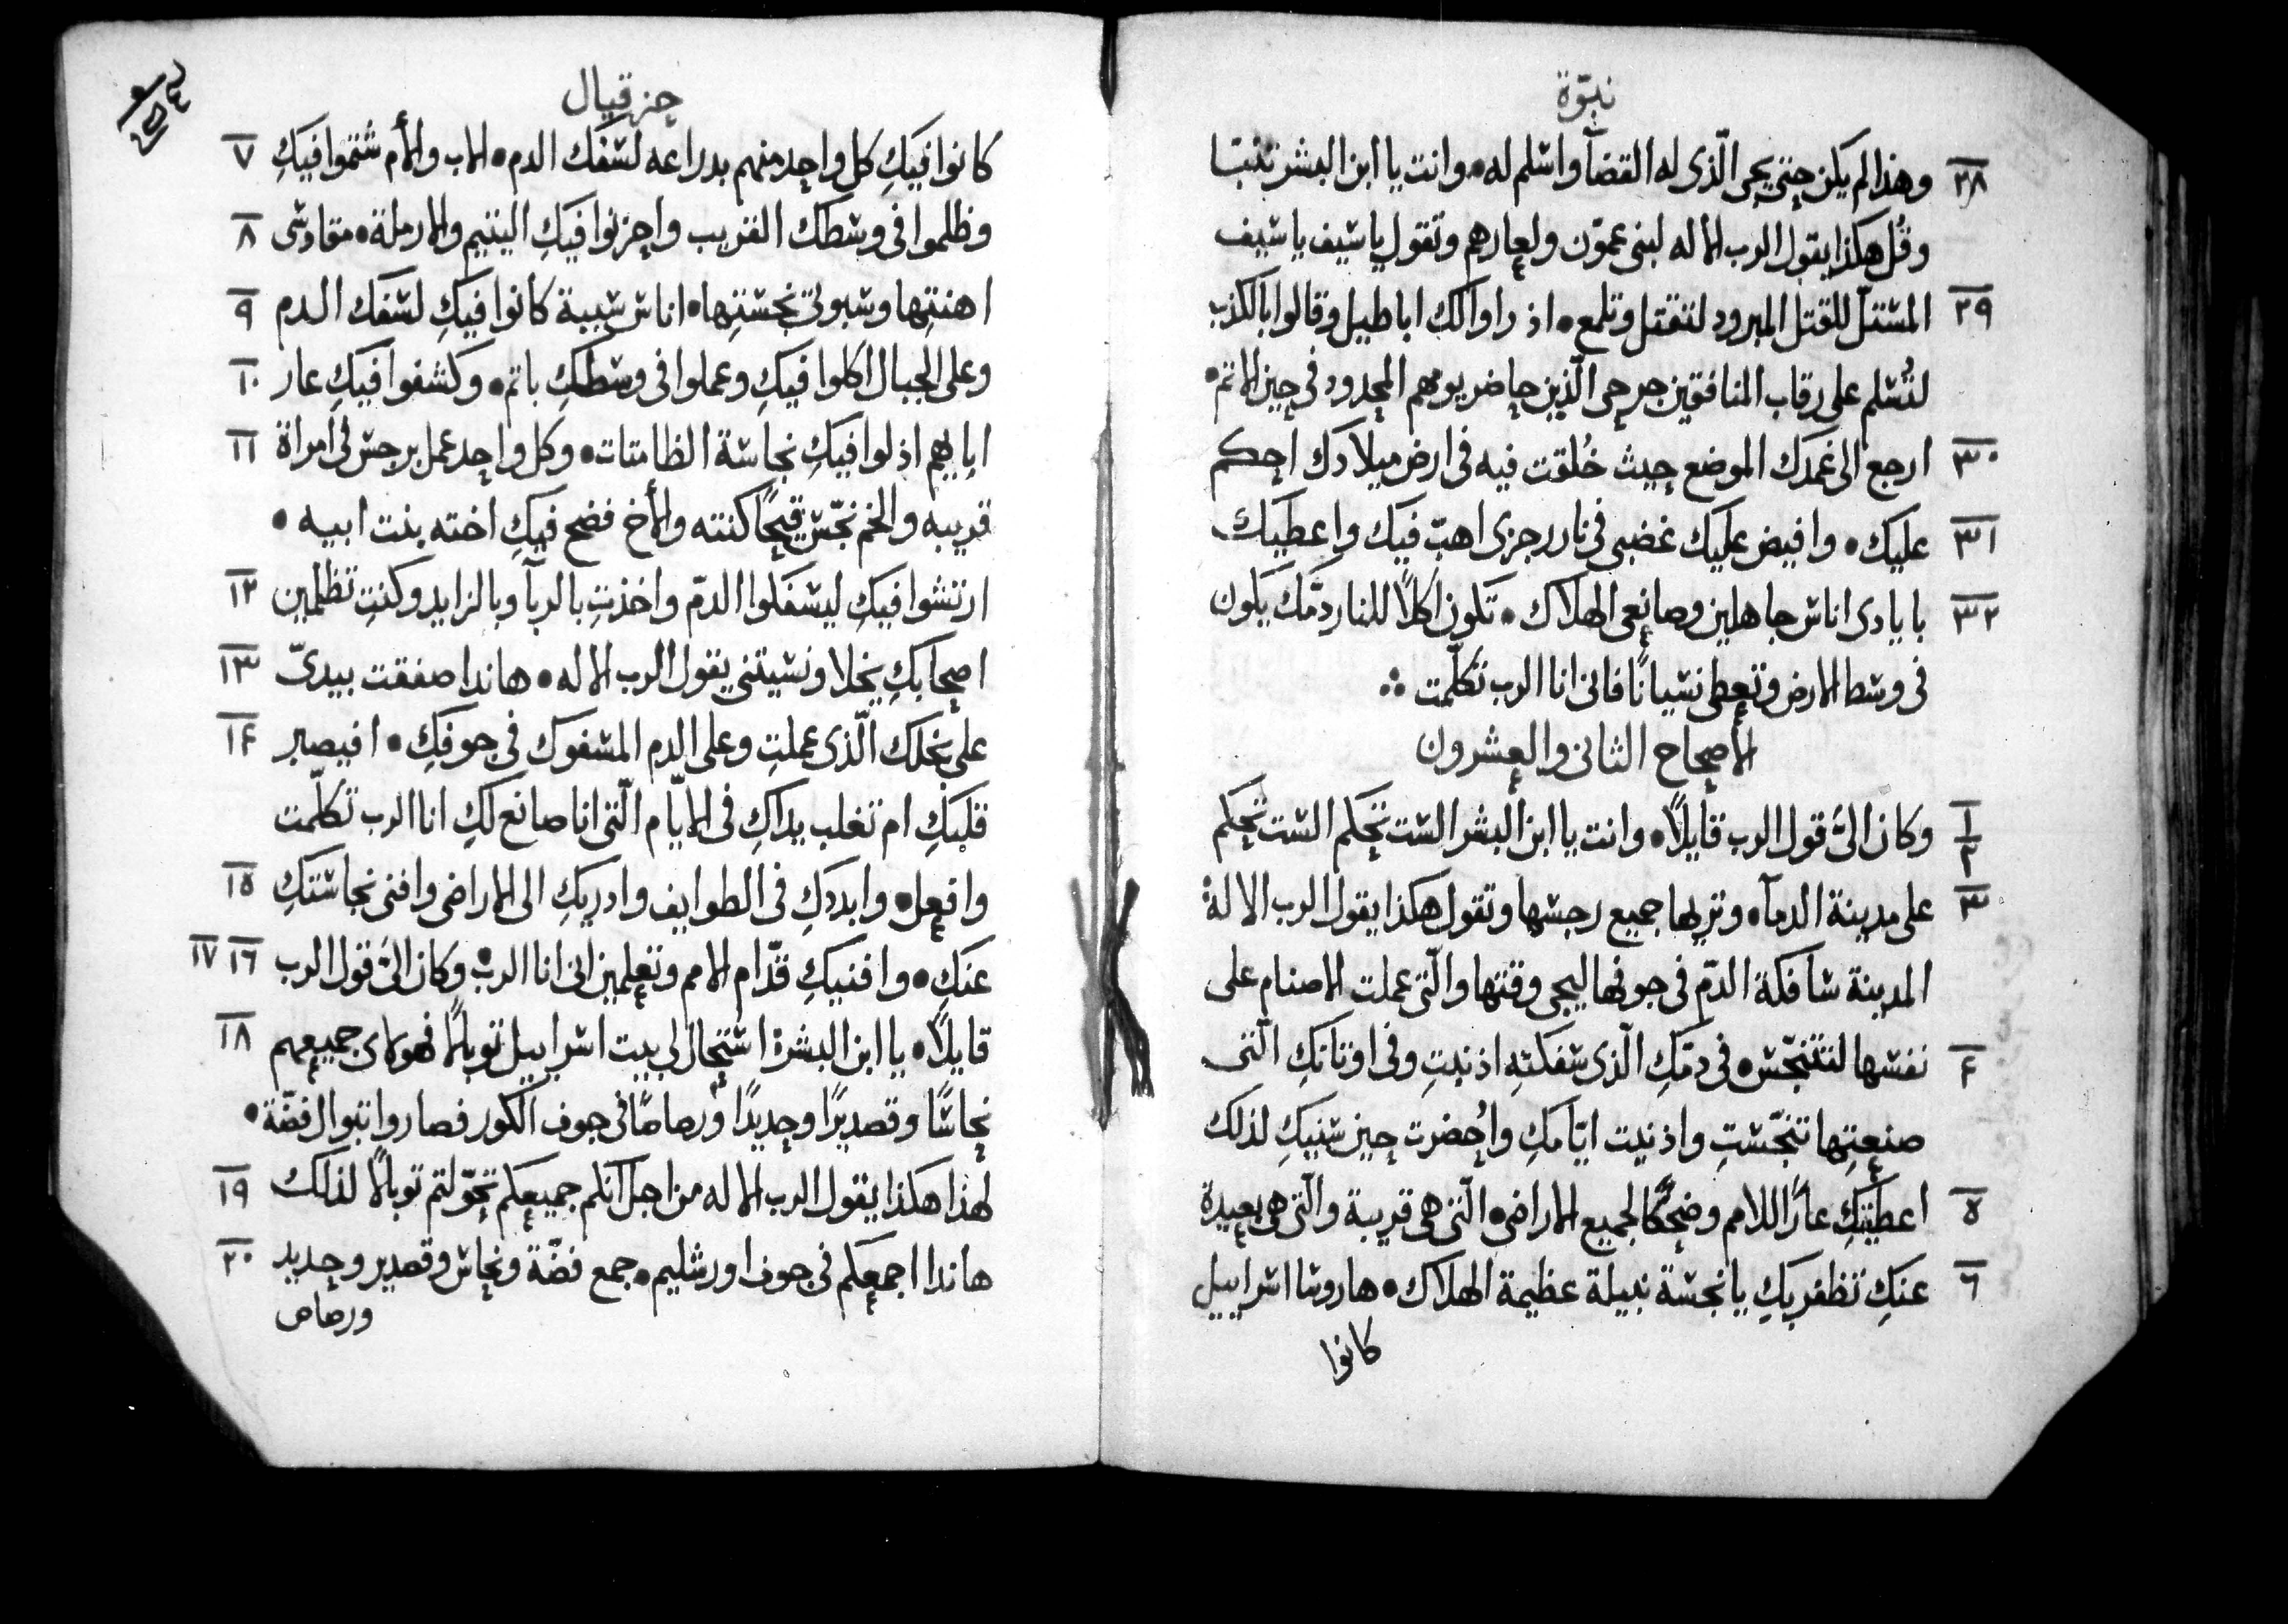 نبوّة
٢٨ وهذا لم يكن حتى يجى الّذى له القضآ واسلم له • وانت يا ابن البشر تنبّا
وقُل هكذا يقول الرب الاله لبنى عمّون ولعارهم وتقول يا سيف يا سيف
٢٩ المستلّ للقتل المبرود لتقتل وتلمع • اذ راوا لك اباطيل وقالوا بالكذب
لتُسلم على رقاب المنافقين جرحى الّذين حاضر يومهم المحدود فى حين الاثم •
٣٠ ارجع الى غمدك الموضع حيث خُلقت فيه فى ارض ميلادك احكم
٣١ عليك • وافيض عليك غضبى فى نار رجزى اهبّ فيك واعطيك
٣٢ بايادى اناس جاهلين وصانعى الهلاك • تكون اكلًا للنار دمّك يكون
فى وسط الارض وتعطى نسيانًا فانى انا الرب تكلّمت
الاصحاح الثانى والعشرون
١ ٢ وكان الىّ قول الرب قايلًا • وانت يا ابن البشر الست تحكم الست تحكم
٣ على مدينة الدمآ • وتريها جميع رجسها وتقول هكذا يقول الرب الاله
المدينة سافكة الدمّ فى جوفها ليجى وقتها والّتى عملت الاصنام على
۴ نفسها لتتنجّس • فى دمّكِ الّذى سفكتهِ اذنبتِ وفى اوثانكِ الّتى
صنعتِها تنجّستِ واذنيت ايّامكِ واُحضرت حين سنيكِ لذلك
٥ اعطيتكِ عارًا للامم وضحكًا لجميع الاراضى • الّتى هى قريبة والّتى هى بعيدة
٦ عنكِ تظفر بكِ يا نجسة نبيلة عظيمة الهلاك • هاروسا اسراييل
كانوا
حزقيال
٧ كانوا فيكِ كل واحد منهم بدراعه لسفك الدم • الاب والأم شتموا فيكِ
٨ وظلموا فى وسطك الغريب واحزنوا فيكِ اليتيم والارملة • مقادسى
٩ اهنتِها وسبوتى نجستِها • اناس سببة كانوا فيكِ لسفك الدم
١٠ وعلى الجبال اكلوا فيكِ وعملوا فى وسطكِ باثم • وكشفوا فيكِ عار
١١ ابايهم اذلوا فيكِ نجاسة الطامثات • وكل واحد عمل برجس لى امراة
قريبه والختم نجّس قبيحًا كنته والأخ فضح فيكِ اخته بنت ابيه •
١٢ ارتشوا فيكِ ليسفكوا الدمّ واخذتِ بالربآ وبالزايد وكنتِ تظلمين
١٣ اصحابكِ بخلا ونسيتنى يقول الرب الاله • هاندا صفقت بيدىّ
١۴ على بخلك الّذى عملتِ وعلى الدم المسفوك فى جوفكِ • افيصبر
قلبكِ ام تغلب يداكِ فى الايّام الّتى انا صانع لكِ انا الرب تكلّمت
١٥ وافعل • وابددكِ فى الطوايف وادريكِ الى الاراضى وافنى نجاستكِ
١٦ ١٧ عنكِ • وافنيكِ قدّام الامم وتعلمين انى انا الرب • وكان الىّ قول الرب
١٨ قايلًا • يا ابن البشرة استحال لى بيت اسراييل توبالًا فهولاى جميعهم
نحاسًا وقصديرًا وحديدًا ورصاصًا فى جوف الكور فصاروا توبال فضّة •
١٩ لهذا هكذا يقول الرب الاله من اجل انكم جميعكم تحوّلتم توبالًا لذلك
٢٠ هاندا اجمعكم فى جوف اورشليم • جمع فضّة ونحاس وقصدير وحديد
ورصاص